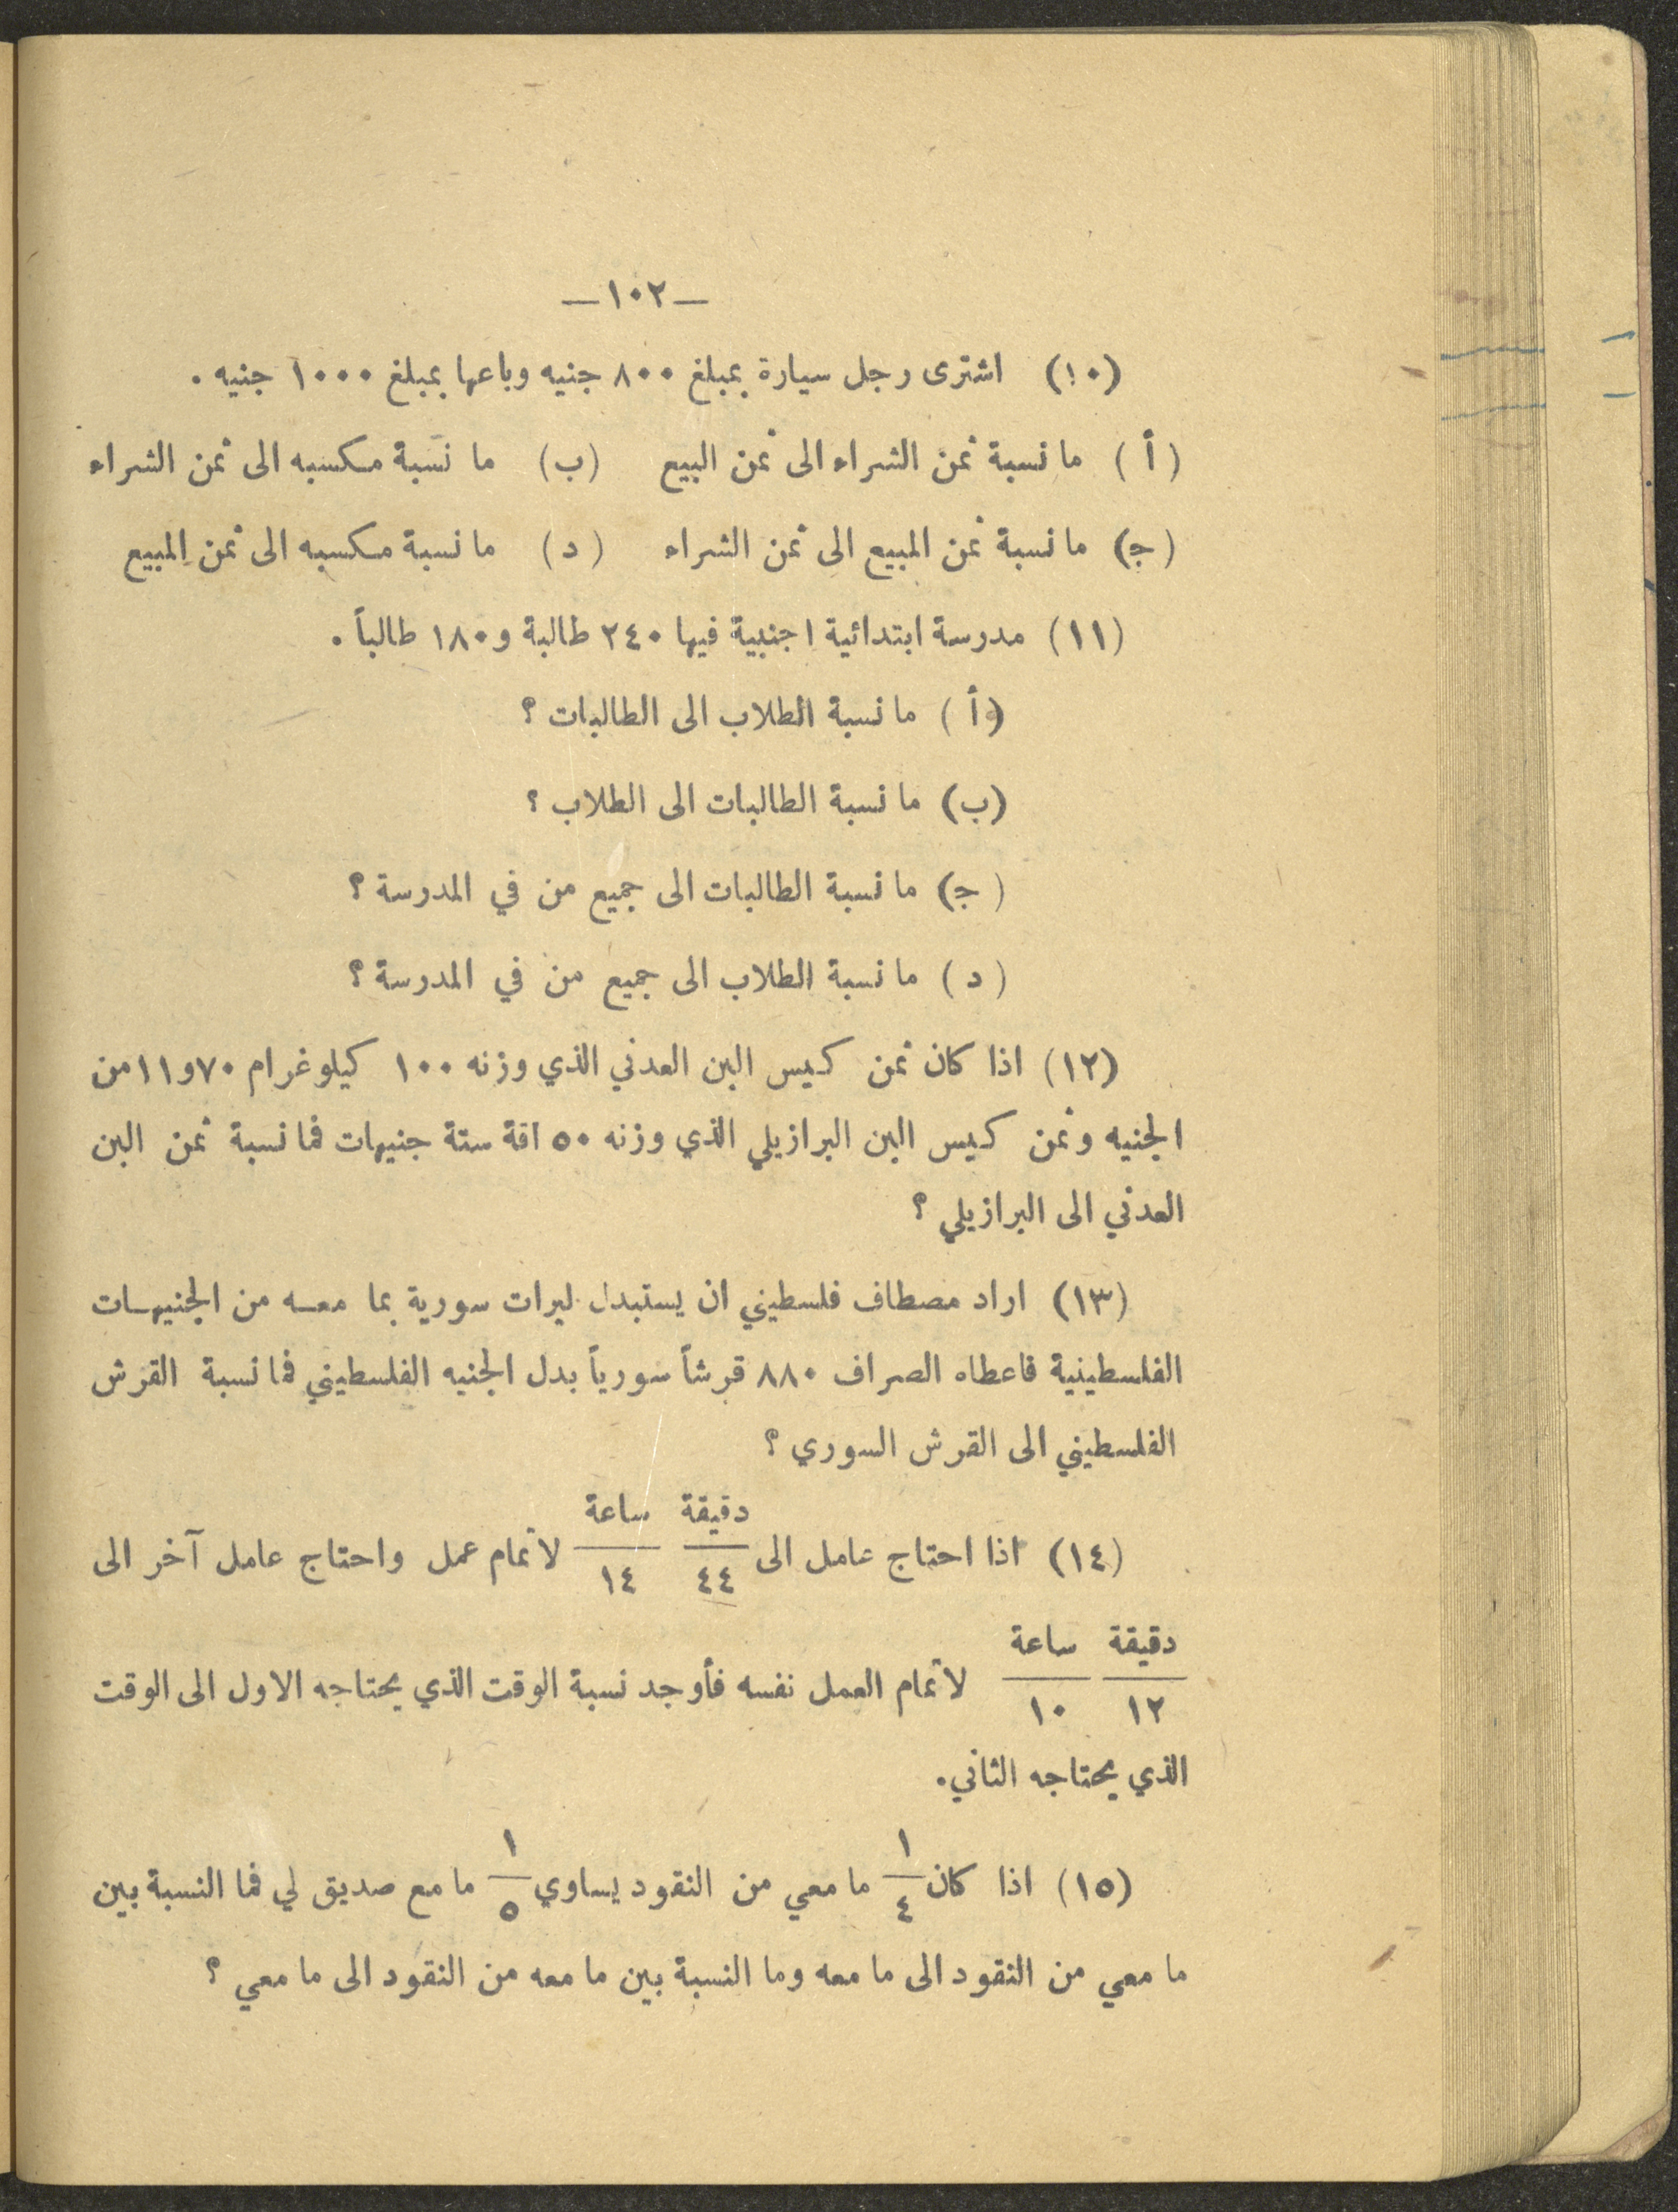 —١٠٢—
(١٠) اشترى رجل سيارة بمبلغ ٨٠٠ جنيه وباعها بمبلغ ١٠٠٠ جنيه .
( أ ) ما نسبة ثمن الشراء الى ثمن البيع (ب) ما نسبة مكسبه الى ثمن الشراء
(ج) ما نسبة ثمن المبيع الى ثمن الشراء ( د ) ما نسبة مكسبه الى ثمن المبيع
(١١) مدرسة ابتدائية اجنبية فيها ٢٤٠ طالبة و١٨٠ طالباً .
( أ ) ما نسبة الطلاب الى الطالبات ؟
(ب) ما نسبة الطالبات الى الطلاب ؟
(ج) ما نسبة الطالبات الى جميع من في المدرسة ؟
( د ) ما نسبة الطلاب الى جميع من في المدرسة ؟
(١٢) اذا كان ثمن كيس البن العدني الذي وزنه ١٠٠ كيلوغرام ٧٠و١١ من
الجنيه وثمن كيس البن البرازيلي الذي وزنه ٥٠ اقة ستة جنيهات فما نسبة ثمن البن
العدني الى البرازيلي ؟
(١٣) اراد مصطاف فلسطيني ان يستبدل ليرات سورية بما معه من الجنيهات
الفلسطينية فاعطاه الصراف ٨٨٠ قرشاً سورياً بدل الجنيه الفلسطيني فما نسبة القرش
الفلسطيني الى القرش السوري ؟
دقيقة ساعة
(١٤) اذا احتاج عامل الى ٤٤ ١٤ لاتمام عمل واحتاج عامل آخر الى
دقيقة ساعة
١٢ ١٠ لاتمام العمل نفسه فأوجد نسبة الوقت الذي يحتاجه الاول الى الوقت
الذي يحتاجه الثاني .
(١٥) اذا كان ١/٤ ما معي من النقود يساوي ١/٥ ما مع صديق لي فما النسبة بين
ما معي من النقود الى ما معه وما النسبة بين ما معه من النقود الى ما معي ؟